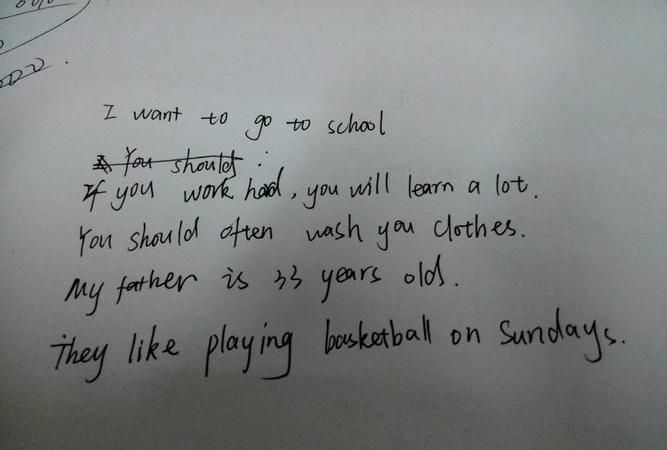 I want to go to school
You should
If you work hard, you will learn a lot.
You should often wash you clothes.
My father is 33 years old.
They like playing basketball on Sundays.